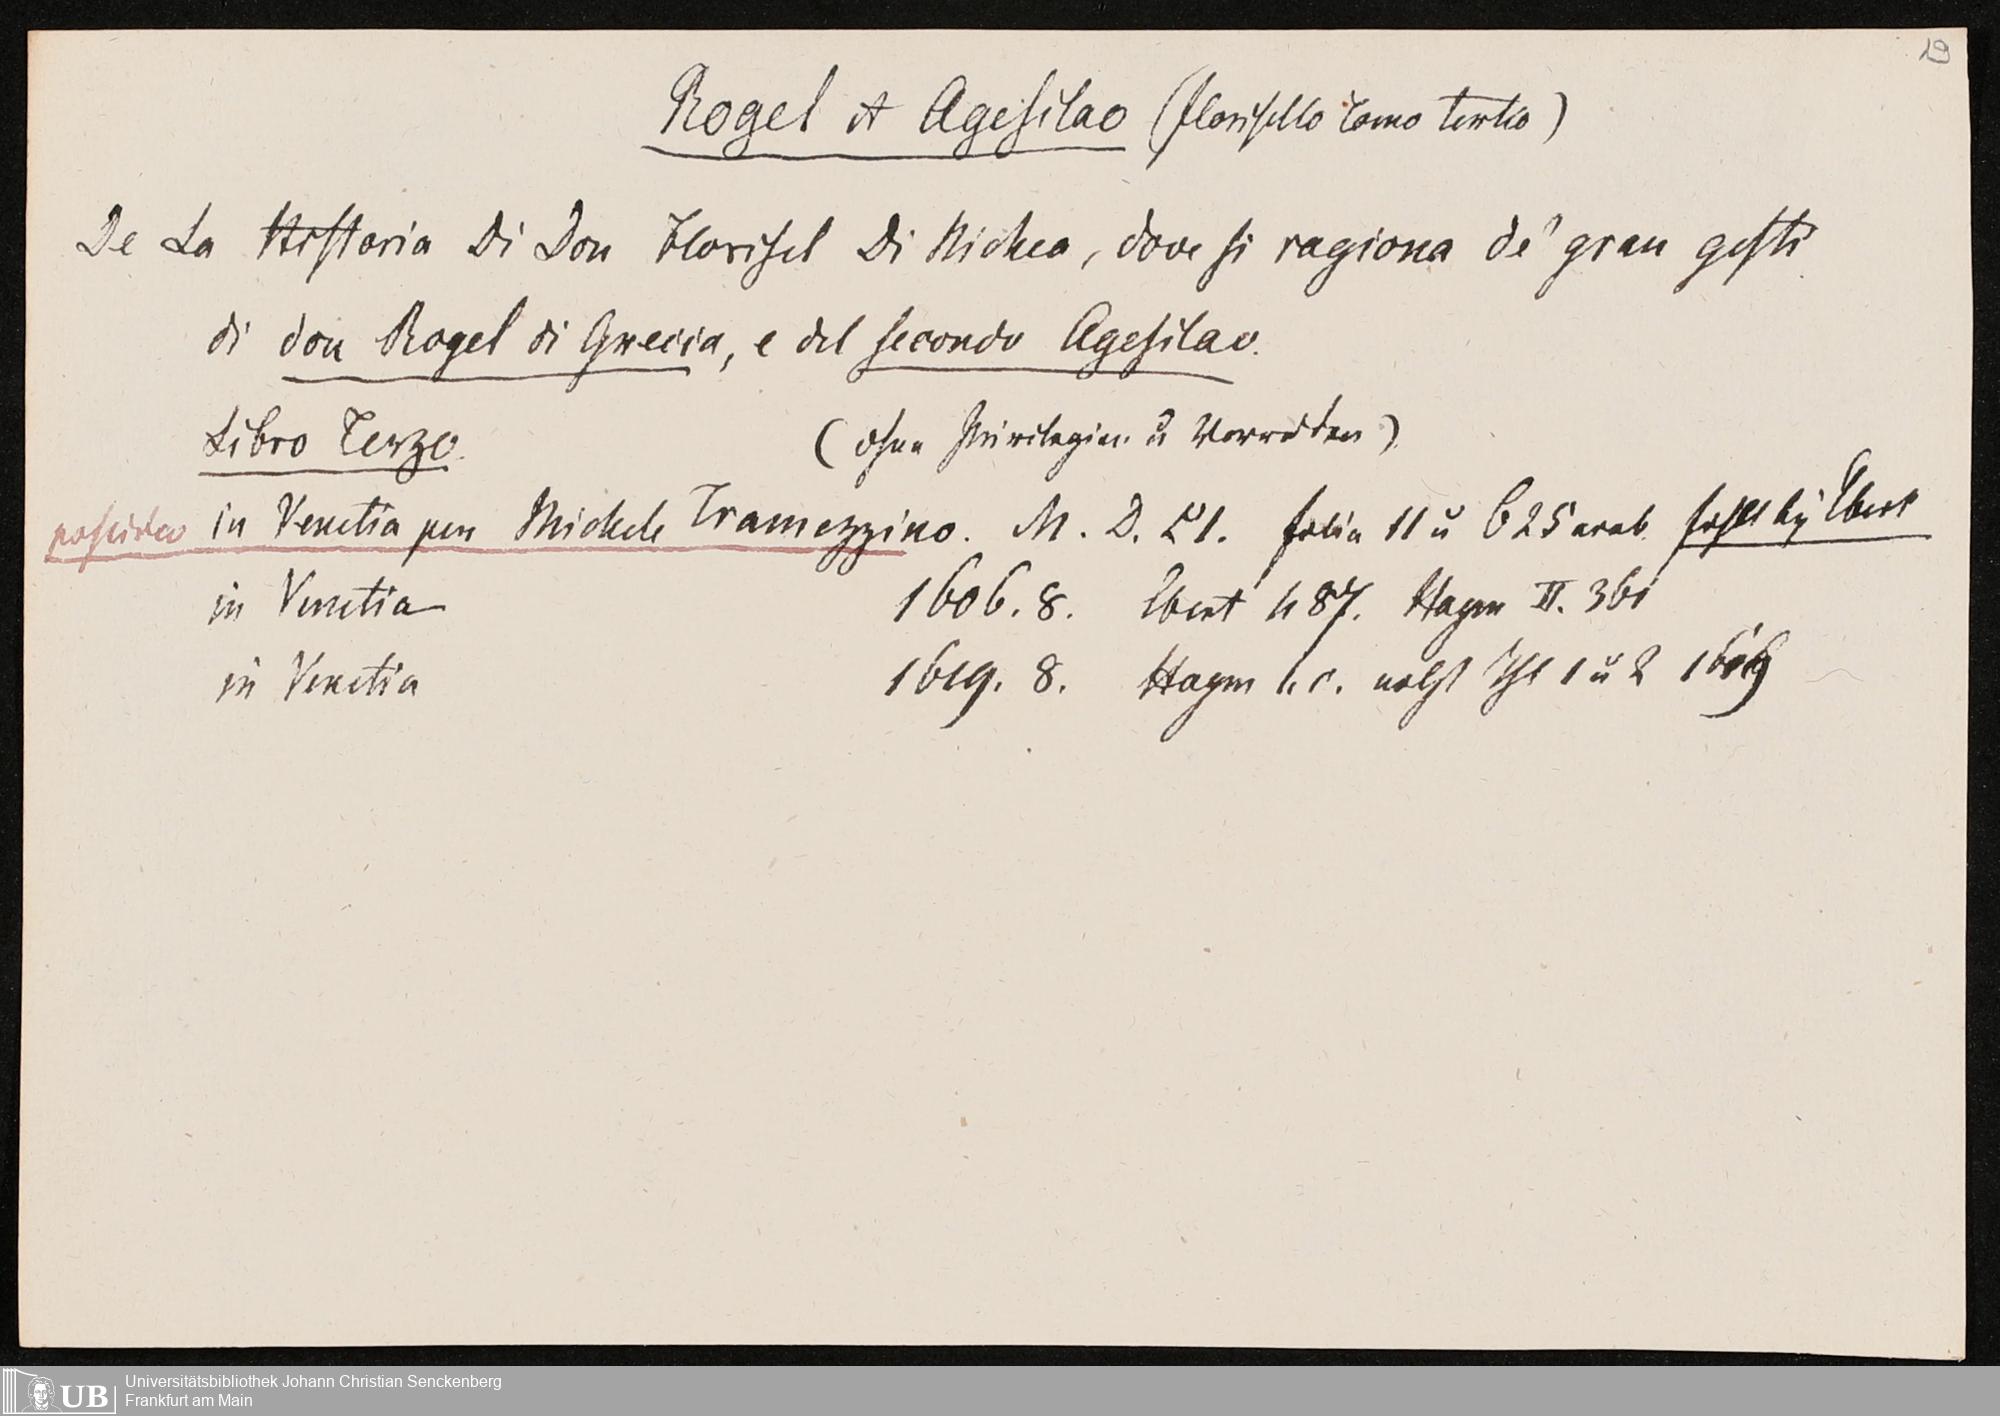 19
Rogel et Agesilao (florisello tomo tertio)
De La Historia Di Don Florisel Di Nichea, dove si ragiona de' gran gesti
di don Rogel di Grecia, e del secondo Agesilao.
Libro Terzo. (ohne Privilegien u Vorreden)
possideo in Venetia per Michele Tramezzino. M. D. LI. folia 11 u 625 arab. fehlt bey Ebert
in Venetia 1606. 8. Ebert 487. Hagen II. 361
in Venetia 1619. 8. Hagen l. c. nebst Thl 1 u 2 1619
UB Universitätsbibliothek Johann Christian Senckenberg
Frankfurt am Main